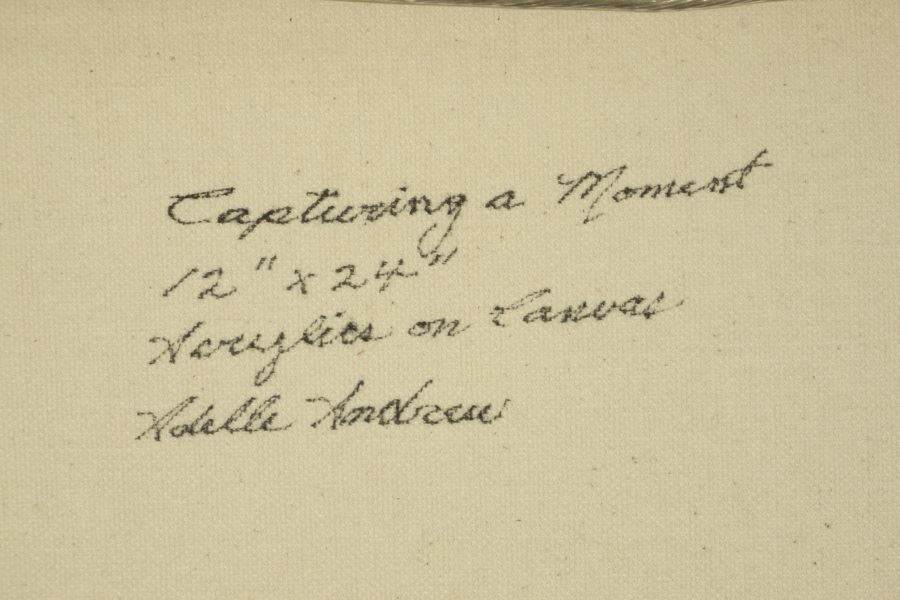 Capturing a Moment
12" x 24"
Acrylics on Canvas
Adelle Andrew